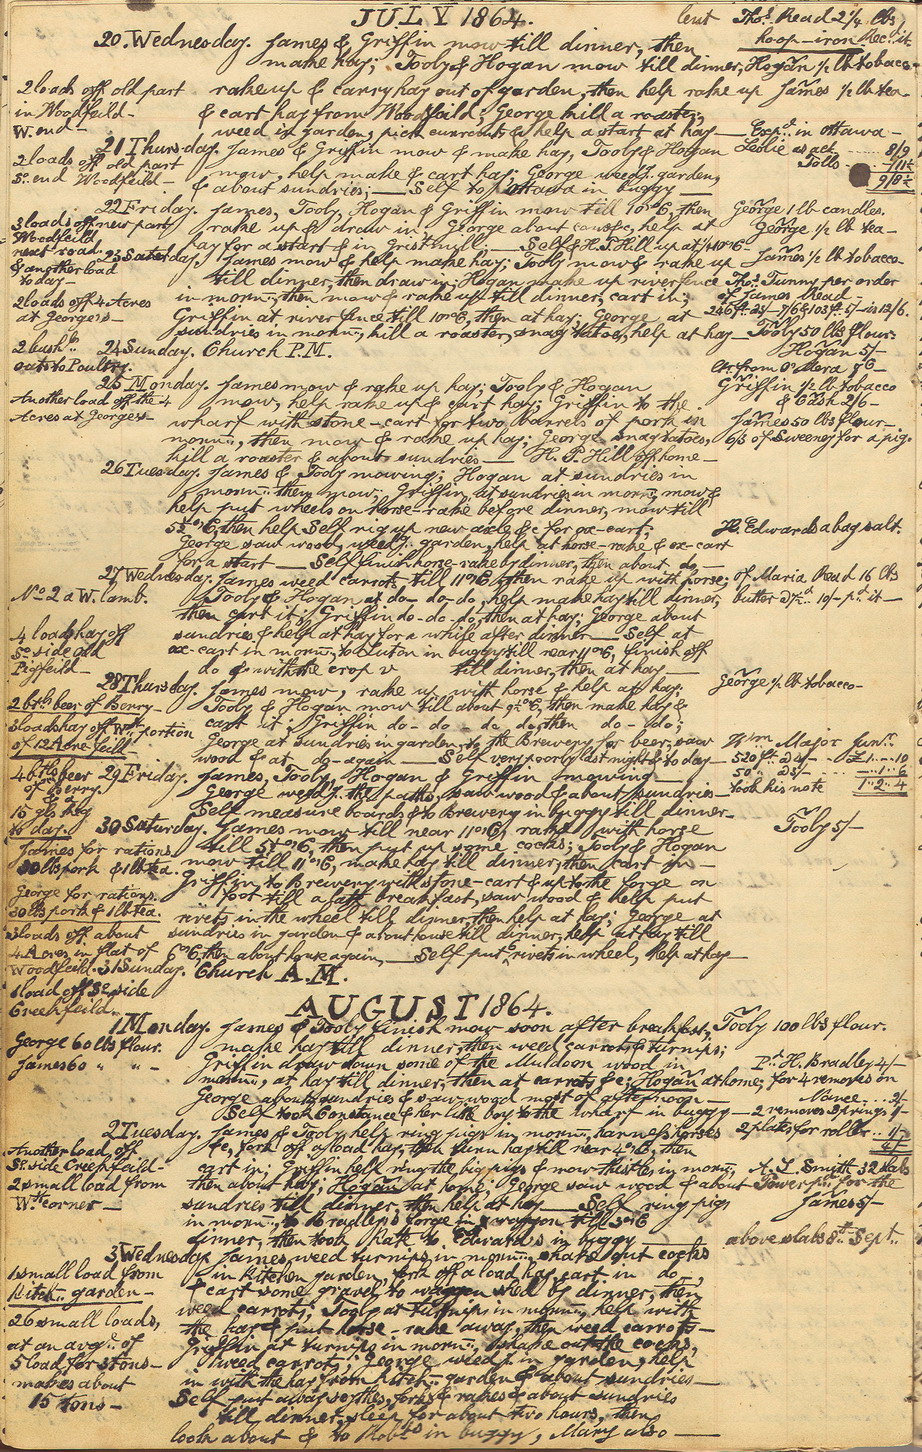 JULY 1864.
lent Thos. Read 2¼ lbs
hoop-iron. Rec. it.
20. Wednesday. James & Griffin mow till dinner, then
make hay; Tooly & Hogan mow till dinner, Hogan ½ lb tobacco-
2 loads off old part
in Woodfeild-
W. end-
rake up & carry hay out of garden, then help rake up James ½ lb tea-
& cart hay from Woodfeild; George kill a roaster,
weed in garden, pick currants & help a start at hay- Exp.d in Ottawa-
21 Thursday. James & Griffin mow & make hay, Tooly & Hogan Leslie as act 8/9
2 loads off old part
So. end Woodfeild-
mow, help make & cart hay; George weed.g garden, Tolls
& about sundries;- Self to Ottawa in buggy-
22 Friday. James, Tooly, Hogan & Griffin mow till 10 o'C, then George 1 lb candles.
3 loads off new part
Woodfeild
next road
& another load
today-
rake up & draw in; George about house, help at George ½ lb tea-
hay for a start & in gristmill.- Self & H.P. Hill up at
23 Saturday. James mow & help make hay; Tooly mow & rake up James ½ lb tobacco
till dinner, then draw in; Hogan make up river fence Thos. Tunny per order
2 loads off 4 Acres
at George's-
in morn.g, then mow & rake up till dinner, cart in; of James Read-
Griffin at river fence till 10 o'C, then at hay; George at
sundries in morn.g, kill a roaster, snag tatoes, help at hay- Tooly 50 lbs flour-
2 bush.ls
oats to Poultry.
24 Sunday. Church P.M.
Hogan 5/-
25 Monday. James mow & rake up hay; Tooly & Hogan Griffin ½ lb tobacco
Another load off the 4
Acres at George's-
mow, help rake up & cart hay; Griffin to the & Cash 2/6-
wharf with stone-cart for two barrels of pork in James 50 lbs flour-
morn.g, then mow & rake up hay; George snag tatoes, of Sweeney for a pig.
kill a roaster & about sundries- H. P. Hill off home-
26 Tuesday. James & Tooly mowing; Hogan at sundries in
morn.g then mow, Griffin at sundries in morn.g mow &
help put wheels on horse-rake before dinner, mow till
5½ o'C, then help Self rig up new axle &c for ox-cart; H. Edwards a bag salt.
George saw wood, weed.g garden, help at horse-rake & ox-cart
for a start- Self finish horse-rake by dinner, then about do-
27 Wednesday. James weed carrots till 11 o'C, then rake up with horse; of Maria Read 16 lbs
No. 2 a W. lamb.
Tooly & Hogan at do-do-do, help make hay till dinner, butter 10/- pd it-
then cart it; Griffin do-do-do, then at hay; George about
4 loads hay off
So. side old
Pigfeild-
sundries & help at hay for a while after dinner- Self at
ox-cart in morn.g, to Luton in buggy till near 11 o'C, finish off
do & with the crop v till dinner, then at hay-
28 Thursday. James mow, rake up with horse & help at hay; George ½ lb tobacco-
2 btls beer of Berry-
3 loads hay off W.st portion
of 12 Acre feild
Tooly & Hogan mow till about 9½ o'C, then make hay &
cart it; Griffin do-do-do-do, then do-do;
George at sundries in garden, to the Brewery for beer, saw Wm. Major Junr.
wood & at do again- Self very poorly last night & to day- 520 ft £1..-..10
4 btls beer
of Berry
&
15 gls keg
to day.
29 Friday. James, Tooly, Hogan & Griffin mowing- 50 -..1..6
George weed.g the paths, saw wood & about sundries- took his note 1..2..4
Self measure boards & to brewery in buggy till dinner-
30 Saturday. James mow till near 11 o'C, rake with horse Tooly 5/-
James for rations
30 lbs pork & 1 lb tea.
till 5½ o'C, then put up some cocks; Tooly & Hogan
mow till 11 o'C, make hay till dinner, then cart in-
George for rations.
30 lbs pork & 1 lb tea.
Griffin to brewery with stone-cart & up to the forge on
foot till a late breakfast, saw wood & help put
rivets in the wheel till dinner, then help at hay; George at
3 loads off about
4 Acres in flat of
Woodfeild.
sundries in garden & about house till dinner, help at hay till
6 o'C, then about house again,- Self put rivets in wheel, help at hay-
31 Sunday. Church A.M.
1 load off So side
Creekfeild.
AUGUST 1864.
1 Monday. James & Tooly finish mow soon after breakfast, Tooly 100 lbs flour.
George 60 lbs flour.
James 60 " " -
make hay till dinner, then weed carrots & turnips;
Griffin draw down some of the Muldoon wood in Pd H. Bradley 4/-
morn.g, at hay till dinner, then at carrots &c; Hogan at home; for 4 removes on
George about sundries & saw wood most of afternoon- Nance... 2/-
Self took Constance & her little boy to the wharf in buggy- 2 removes Springs 1/-
2 Tuesday. James & Tooly help ring pigs in morn.g, harness horses 2 plates for roller.. 1/-
Another load off
So. side Creekfeild-
2 small load from
W.st corner-
&c, fork off a load hay, then turn hay till near 4 o'C, then
cart in; Griffin help ring the big pigs & mow thistles in morn.g, A. L. Smith 32 slabs
then about hay; Hogan at home, George saw wood & about for the
sundries till dinner, then help at hay- Self ring pigs James 5/-
in morn.g, to Bradley's forge in waggon till 3 o'C
dinner, then took Kate to Edwards's in buggy- above slabs 8th Sept.
3 Wednesday James weed turnips in morn.g, shake out cocks
1 small load from
Kitch. garden-
in Kitchen garden, fork off a load hay, cart in do,
& cart some gravel to waggon shed by dinner, then
26 small loads,
at an avge of
5 load for 3 tons-
makes about
15 tons-
weed carrots; Tooly at turnips in morn.g, help with
the hay & put horse-rake away, then weed carrots-
Griffin at turnips in morn.g, shake out the cocks,
weed carrots; George weed.g in garden, help
in with the hay from kitch. garden & about sundries-
Self put away scythes, forks & rakes & about sundries
till dinner, sleep for about two hours, then
look about & to Robts in buggy, Mary also-